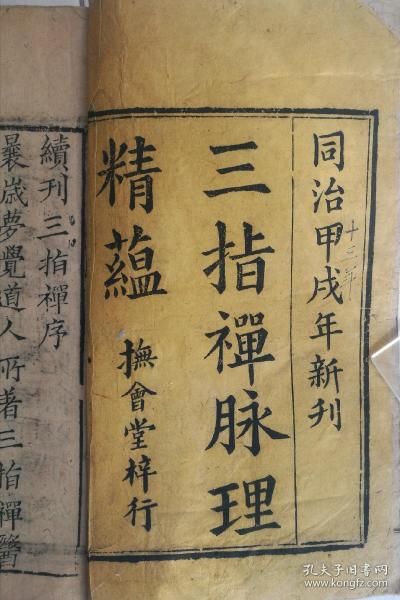 同治甲戌年新刊
十三年
三指禪脉理
精蘊
撫會堂梓行
續刊三指禪序
曩歲夢覺道人所著三指禪醫
孔夫子旧书网
www.kongfz.com